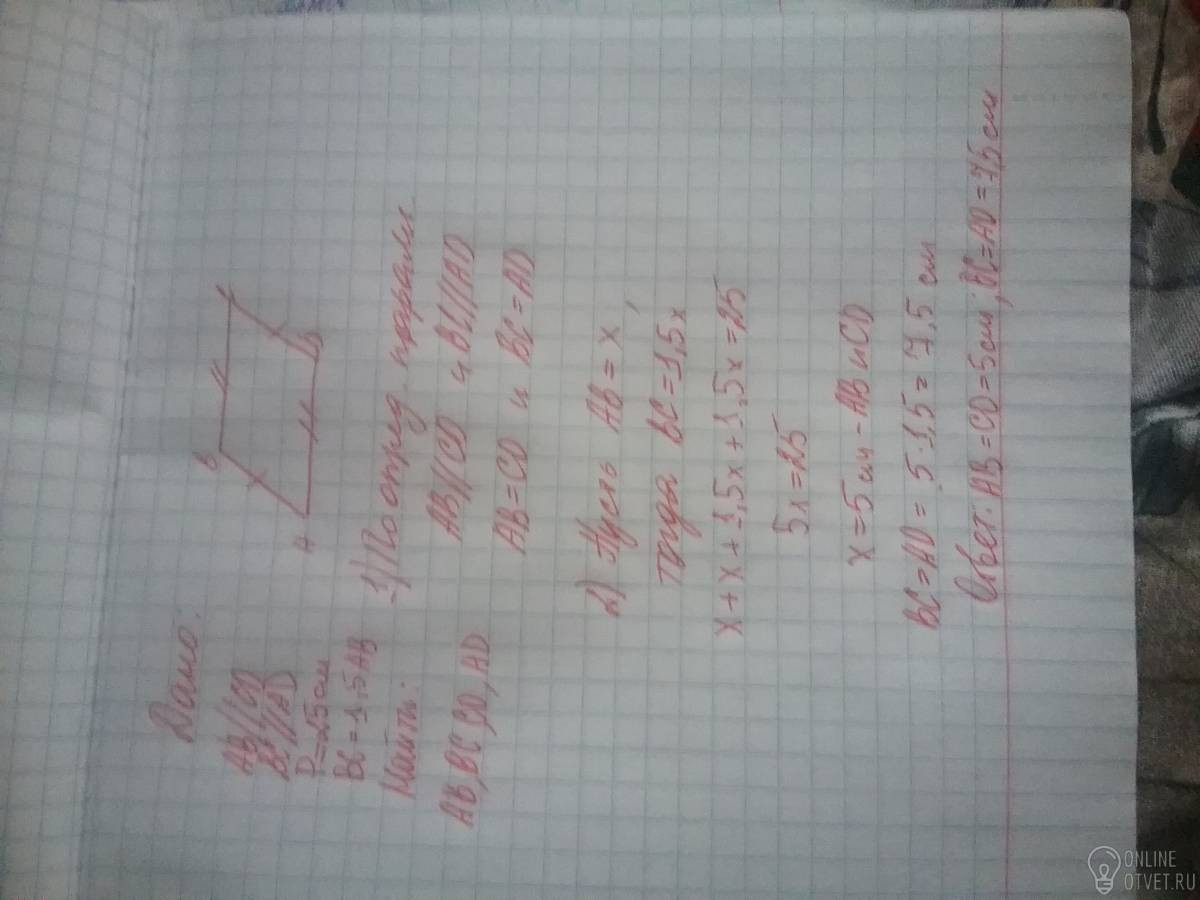 Дано:
AB//CD
BC//AD
P=25см
BC=1,5AB
Найти:
AB, BC, CD, AD
B
A
D
1) По опред. паралл
AB//CD и BC//AD
AB=CD и BC=AD
2) Пусть AB=x,
тогда BC=1,5x
x+x+1,5x+1,5x=25
5x=25
x=5см-AB и CD
BC=AD=5·1,5=7,5 см
Ответ: AB=CD=5см; BC=AD=7,5см
ONLINE
OTVET.RU